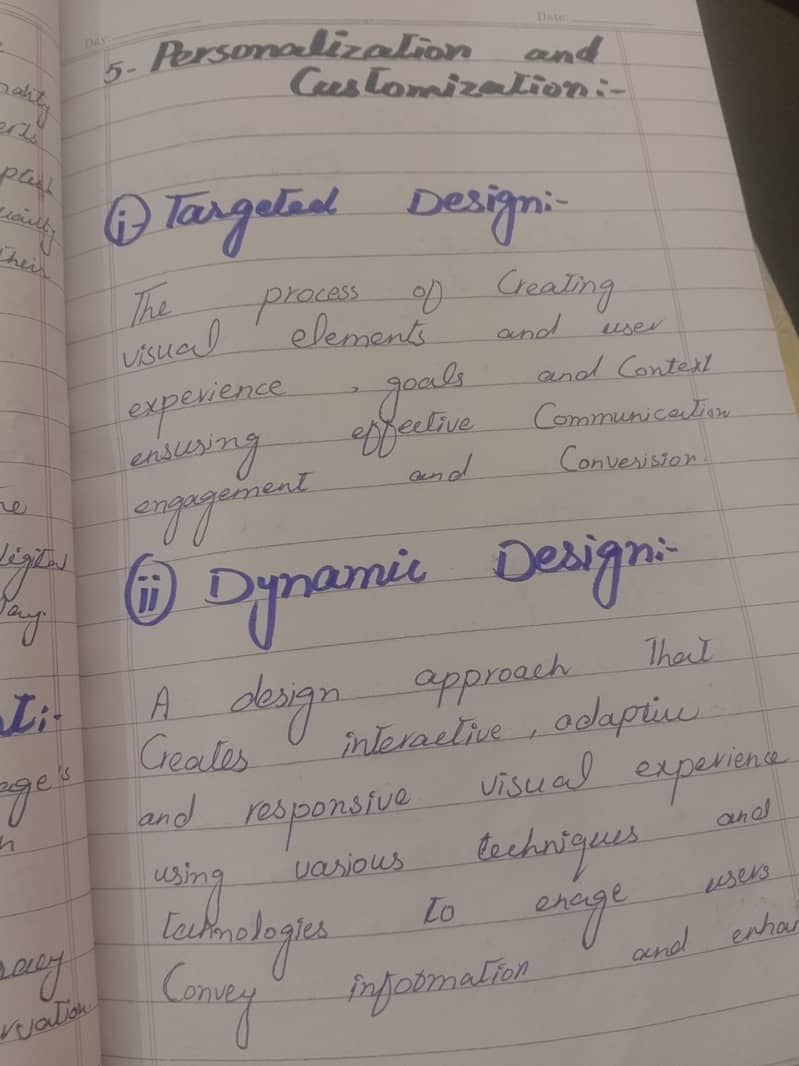 Day:
Date:
5- Personalization and
Customization:-
i) Targeted Design:-
The process of Creating
visual elements and user
experience , goals and Context
ensuring effective Communication
engagement and Converision.
ii) Dynamic Design:-
A design approach that
Creates interactive, adaptive
and responsive visual experience
using various techniques and
technologies to enage users
Convey information and enhan
their
digital
age's